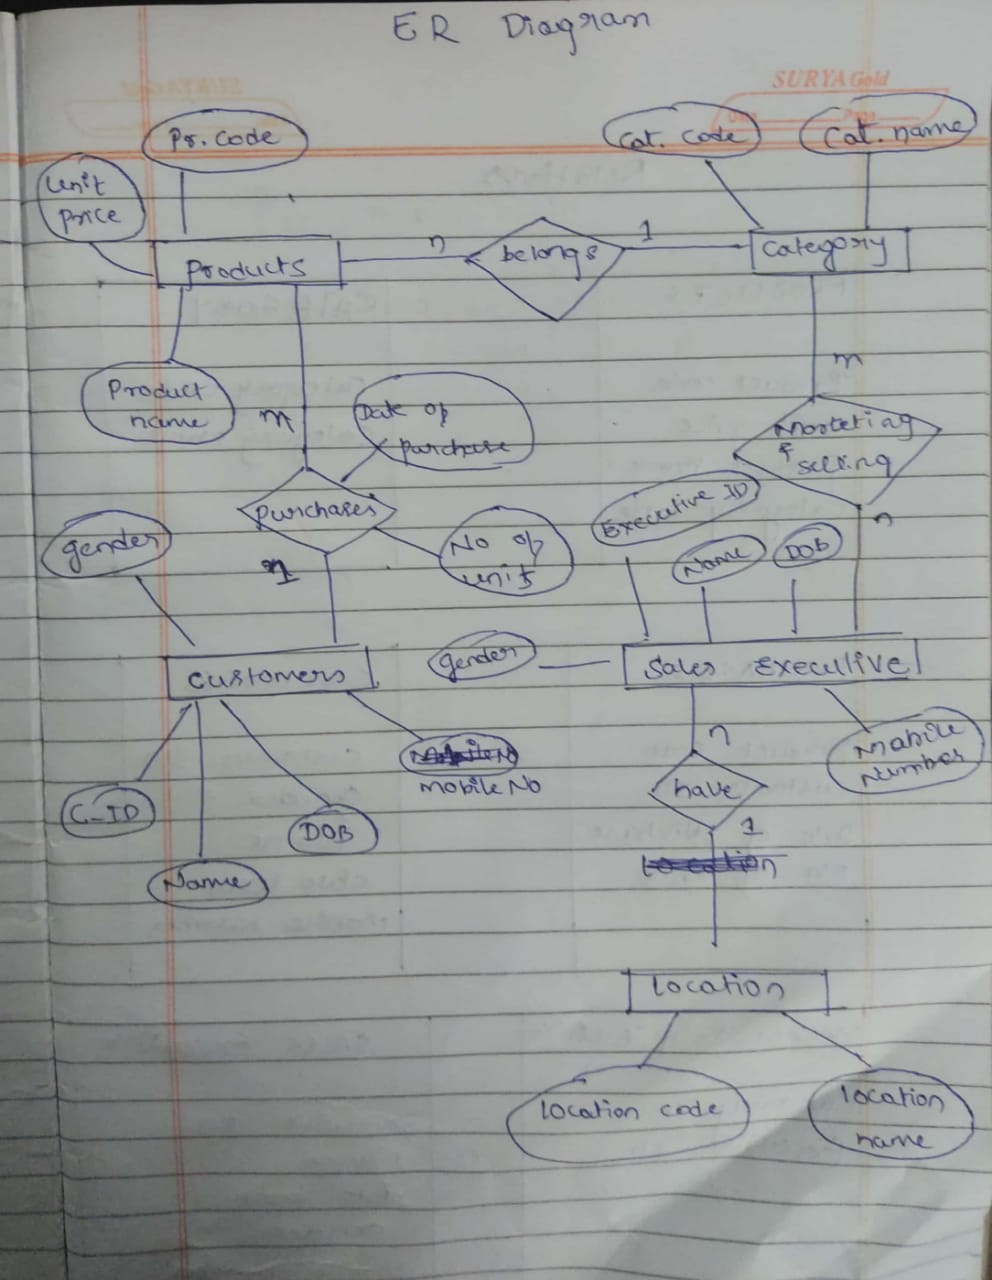 ER Diagram
SURYA Gold
Pr. code
Cat. code
Cat. name
Unit
Price
Products
n
belongs
1
Category
Product
name
m
Date of
purchase
m
Marketing
&
selling
purchases
Executive ID
n
gender
No of
units
Name
DOB
n
Customers
gender
Sales Executive
n
Mobile
Number
mobile No
have
C-ID
DOB
1
Name
Location
Location code
Location
name